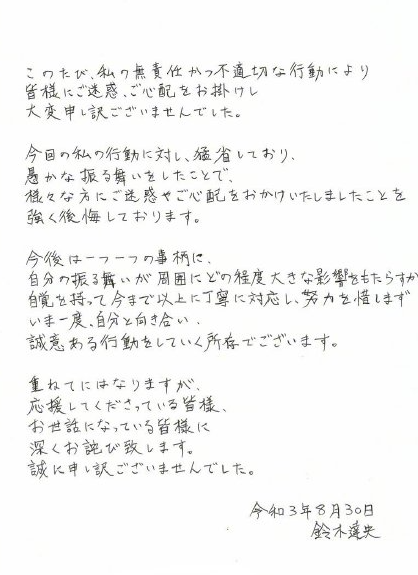 このたび、私の無責任かつ不適切な行動により
皆様にご迷惑、ご心配をお掛けし
大変申し訳ございませんでした。
今回の私の行動に対し、猛省しており、
愚かな振る舞いをしたことで、
様々な方にご迷惑やご心配をおかけいたしましたことを
強く後悔しております。
今後は一つ一つの事柄に、
自分の振る舞いが周囲にどの程度大きな影響をもたらすか
自覚を持って今まで以上に丁寧に対応し、努力を惜しまず
いま一度、自分と向き合い、
誠意ある行動をしていく所存でございます。
重ねてにはなりますが、
応援してくださっている皆様、
お世話になっている皆様に
深くお詫び致します。
誠に申し訳ございませんでした。
令和3年8月30日
鈴木達央